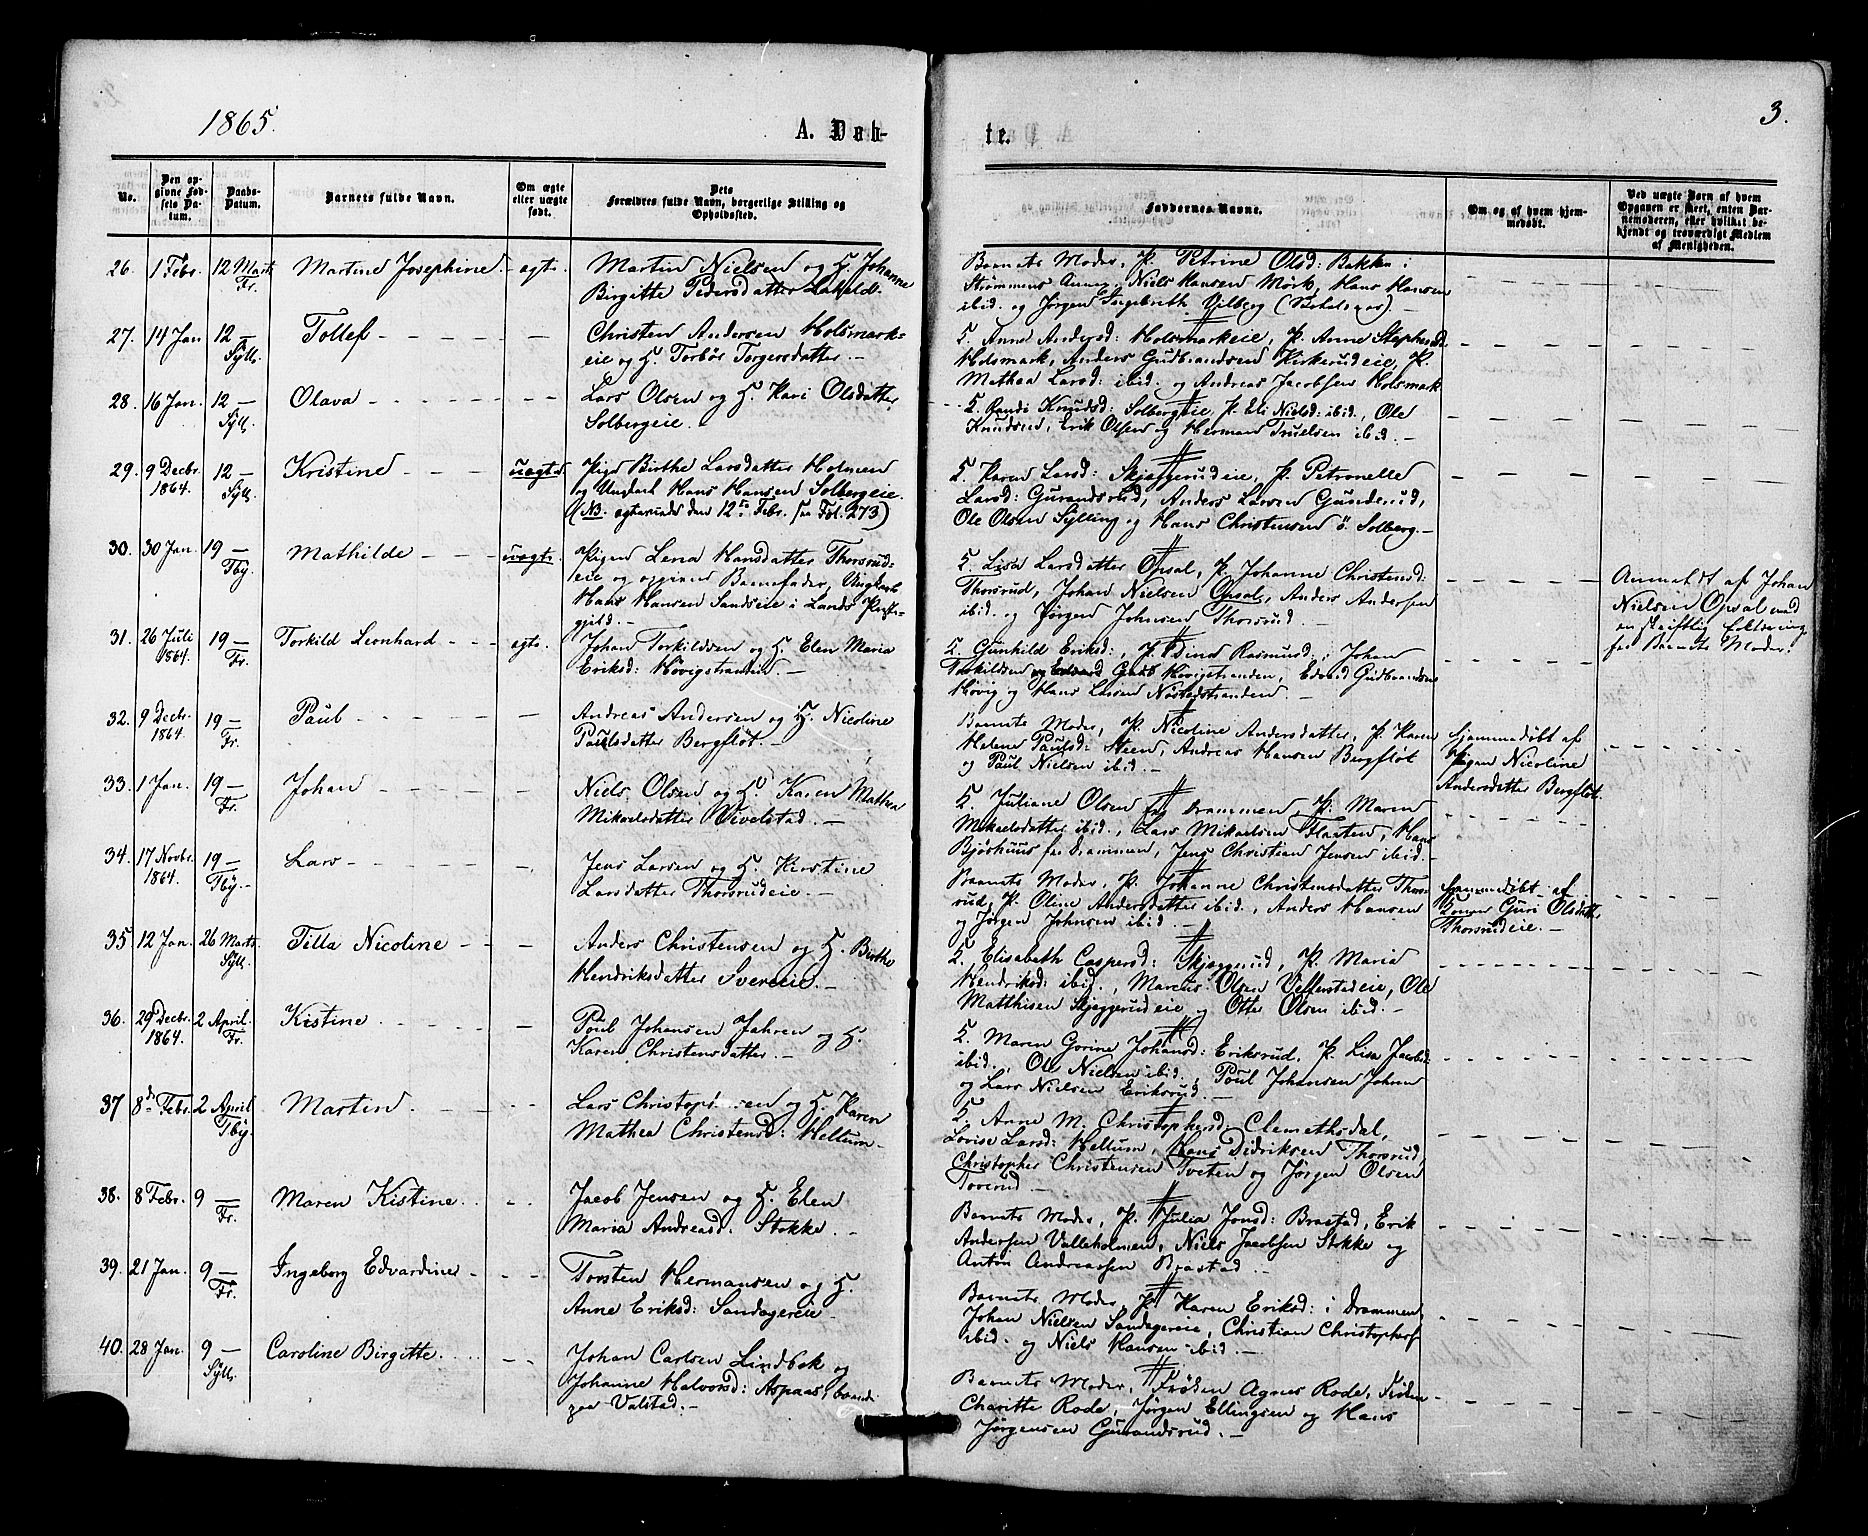 1865.
A. Døb-
te.
3.
No.
Den op-
givne Fød-
sels Da-
tum.
Daabs-
Datum.
Barnets fulde Navn.
Om ægte
eller uægte
født.
Dets
Forældres fulde Navn, borgerlige Stilling og
Opholdssted.
Faddernes Navne.
Om og af hvem hjem-
medøbt.
Ved uægte Børn af hvem
Opgaven er skeet, enten Bar-
nemoderen, eller hvilket be-
kjendt og troværdigt Medlem
af Menigheden.
26. 1 Febr. 12 Marts Fr. Martine Josephine. ægte
Martin Nielsen og H. Johanne
Birgitte Pedersdatter
Barnets Moder, P. Petrine Olsd: Bakke i
Strømmens Annex, Niels Hansen Mörk, Hans Hansen
ibid. og Jørgen Ingebreth Vilberg
27. 14 Jan 12 — Syll. Tollef
Christen Andersen Holsmark-
eie og H. Torbör Torgersdatter. —
K. Anne Andersd: Holsmarkeie, P. Anne Stephensd
Holsmark, Anders Gudbrandsen Kirkerudeie, P.
Mathea Larsd: ibid. og Andreas Jacobsen Holsmark
28. 16 Jan. 12 — Syll. Olava
Lars Olsen og H. Kari Olsdatter
Solbergeie. —
K. Randi Knudsd: Solbergeie, P. Eli Nielsd: ibid., Ole
Knudsen, Erik Olsen og Herman Truelsen ibid. —
29. 9 Decbr. 1864. 12 — Syll. Kristine uægte
Pige Birthe Larsdatter Holmen
og Ungkarl Hans Hansen Solbergeie.
(NB. ægteviede den 12te Febr. see Fol. 273)
K. Karen Larsd: Skjæggerudeie, P. Petronelle
Larsd: Gurandsrud, Anders Larsen Gunderud,
Ole Olsen Sylling og Hans Christensen ö. Solberg. —
30. 30 Jan. 19 — Tby. Mathilde uægte.
Pigen Lena Hansdatter Thorsrud-
eie og opgiven Barnefader, Ungkarl
Hans Hansen Sandseie i Lands Præste-
gjeld. —
K. Lisa Larsdatter Opsal, P. Johanne Christensd:
Thorsrud, Johan Nielsen Opsal, Anders Andersen
ibid. og Jörgen Johnsen Thorsrud. —
Anmeldt af Johan
Nielsen Opsal med
en skriftlig Erklæring
fra Barnets Moder.
31. 26 Juli 1864. 19 — Fr. Torkild Leonhard ægte.
Johan Torkildsen og H. Elen Maria
Eriksd: Hövigstranden. —
K. Gunhild Eriksd:, P. Dina Rasmusd:, Johan
Torkildsen Hövigstranden, Edvard Gudbrandsen
Hövig og Hans Larsen Nöstedstranden. —
32. 9 Decbr. 1864. 19 — Fr. Paul
Andreas Andersen og H. Nicoline
Paulsdatter Bergflöt. —
Barnets Moder, P. Nicoline Andersdatter, P. Karen
Helene Paulsd: Steen, Andreas Hansen Bergflöt
og Paul Nielsen ibid. —
hjemmedöbt af
Pigen Nicoline
Andersdatter Bergflöt.
33. 1 Jan. 19 — Fr. Johan
Niels Olsen og H. Karen Mathea
Mikaelsdatter Vivelstad. —
K. Juliane Olsen fra Drammen, P. Maren
Mikaelsdatter ibid., Lars Mikaelsen Flaaten, Hans
Bjöshuus fra Drammen, Jens Christian Jensen ibid. —
34. 17 Novbr. 1864. 19 — Tby. — Lars
Jens Larsen og H. Kirstine
Larsdatter Thorsrudeie. —
Barnets Moder, P. Johanne Christensdatter Thors-
rud, P. Oline Andersdatter ibid., Anders Hansen
og Jörgen Johnsen ibid. —
hjemmedöbt af
Konen Guri Olsdatter
Thorsrudeie. —
35. 12 Jan. 26 Marts Syll. Tilla Nicoline
Anders Christensen og H. Birthe
Hendriksdatter Svereeie. —
K. Elisabeth Caspersd: Skjæggerud, P. Maria
Hendriksd: ibid., Marcus Olsen Vefferstadeie, Ole
Matthisen Skjæggerudeie og Otter Olsen ibid. —
36. 29 Decbr. 1864. 2 April. Fr. Kistine
Poul Johansen Jahren og H.
Karen Christensdatter. —
K. Maren Gorine Johansd: Eriksrud, P. Lisa Jacobsd:
ibid., Ole Nielsen ibid., Poul Johansen Jahren
og Lars Nielsen Eriksrud. —
37 8de Febr. 2 April Tby. Martin
Lars Christophersen og H. Karen
Mathea Christensd: Hellum —
K. Anne M. Christophersd: Clemethsdal,
Lovise Larsd: Hellum, Hans Didriksen Thorsrud,
Christopher Christensen Tveten og Jörgen Olsen
Toverud —
38. 8 Febr. 9 — Fr. Maren Kistine
Jacob Jensen og H. Elen
Maria Andreasd. Stokke. —
Barnets Moder, P. Julia Jonsd: Brastad, Erik
Andersen Valleholmen, Niels Jacobsen Stokke og
Anton Andreassen Brastad. —
39. 21 Jan. 9 — Fr. Ingeborg Edvardine
Torsten Hermansen og H.
Anne Eriksd: Sandagereie
Barnets Moder, P. Karen Eriksd: i Drammen
Johan Nielsen Sandagereie, Christian Christophers
ibid. og Niels Hansen ibid. —
40. 28 Jan. 9 — Syll. Caroline Birgitte
Johan Carlsen Lindbek og
Johanne Halvorsd: Aspaas, boende
paa Valstad. —
Barnets Moder, Fröken Agnes Rode, Fröken
Charitte Rode, Jörgen Ellingsen og Hans
Jörgensen Gurandsrud. —